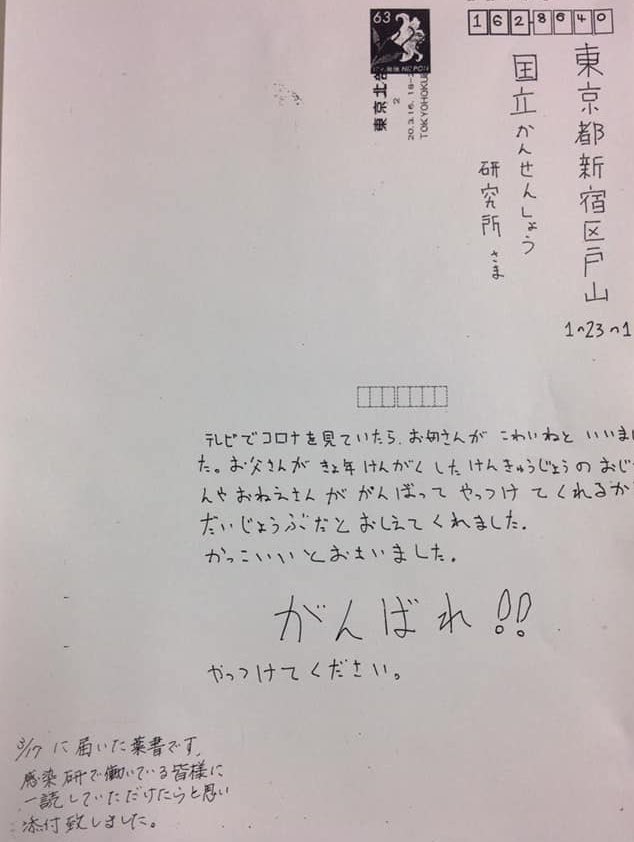 63
NIPPON
東京北
2
20.3.16. 18-
TOKYOHOKU
1628640
東京都新宿区戸山
1の23の1
国立かんせんしょう
研究所 さま
テレビでコロナを見ていたら、お母さんが こわいねと いいまし
た。お父さんが きょ年 けんがく した けんきゅうじょう の おじ
んや おねえさん が がんばって やっつけ てくれるか
だいじょうぶだと おしえて くれました。
かっこいい と おもいました。
がんばれ!!
やっつけてください。
3/17 に届いた葉書です。
感染研で働いている皆様に
一読していただけたらと思い
添付致しました。